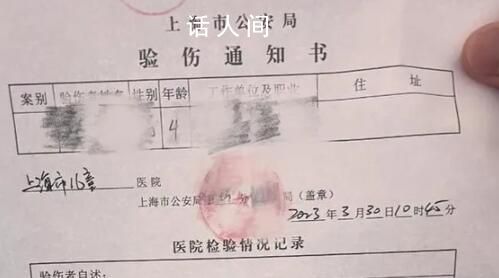 话人间
上海市公安局
验伤通知书
案别 验伤者姓名 性别 年龄 工作单位及职业 住址
4
上海市儿童 医院
上海市公安局 分局（盖章）
2023年3月30日10时45分
医院检验情况记录
验伤者自述：